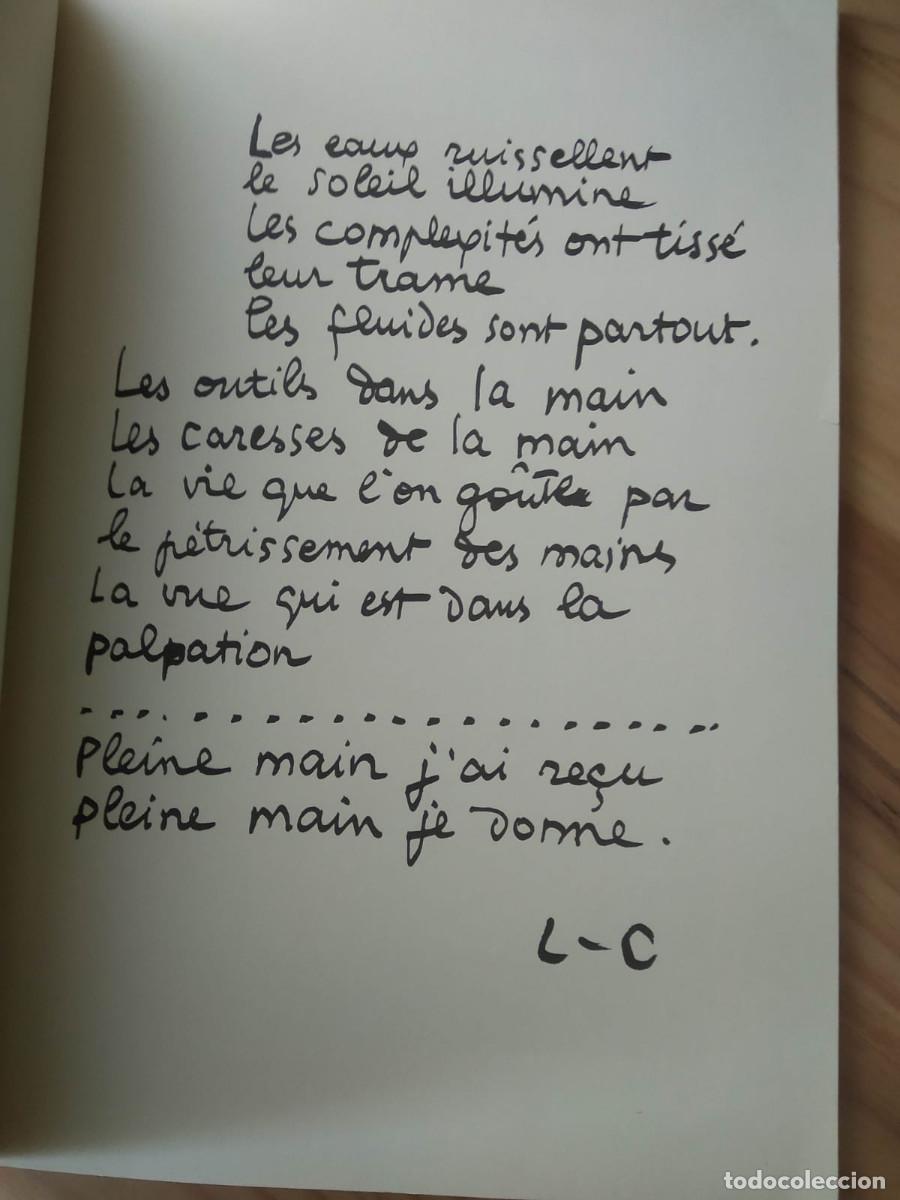 Les eaux ruissellent
le soleil illumine
Les complexités ont tissé
leur trame
les fluides sont partout.
Les outils dans la main
Les caresses de la main
La vie que l'on goûte par
le pétrissement des mains
La vue qui est dans la
palpation
.......................
Pleine main j'ai reçu
pleine main je donne.
L-C
todocoleccion